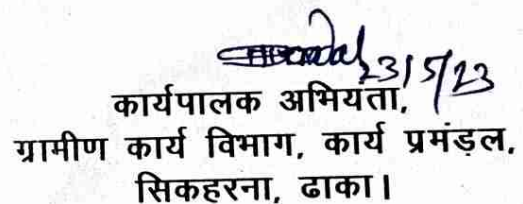 23/5/23
कार्यपालक अभियंता,
ग्रामीण कार्य विभाग, कार्य प्रमंडल,
सिकहरना, ढाका।